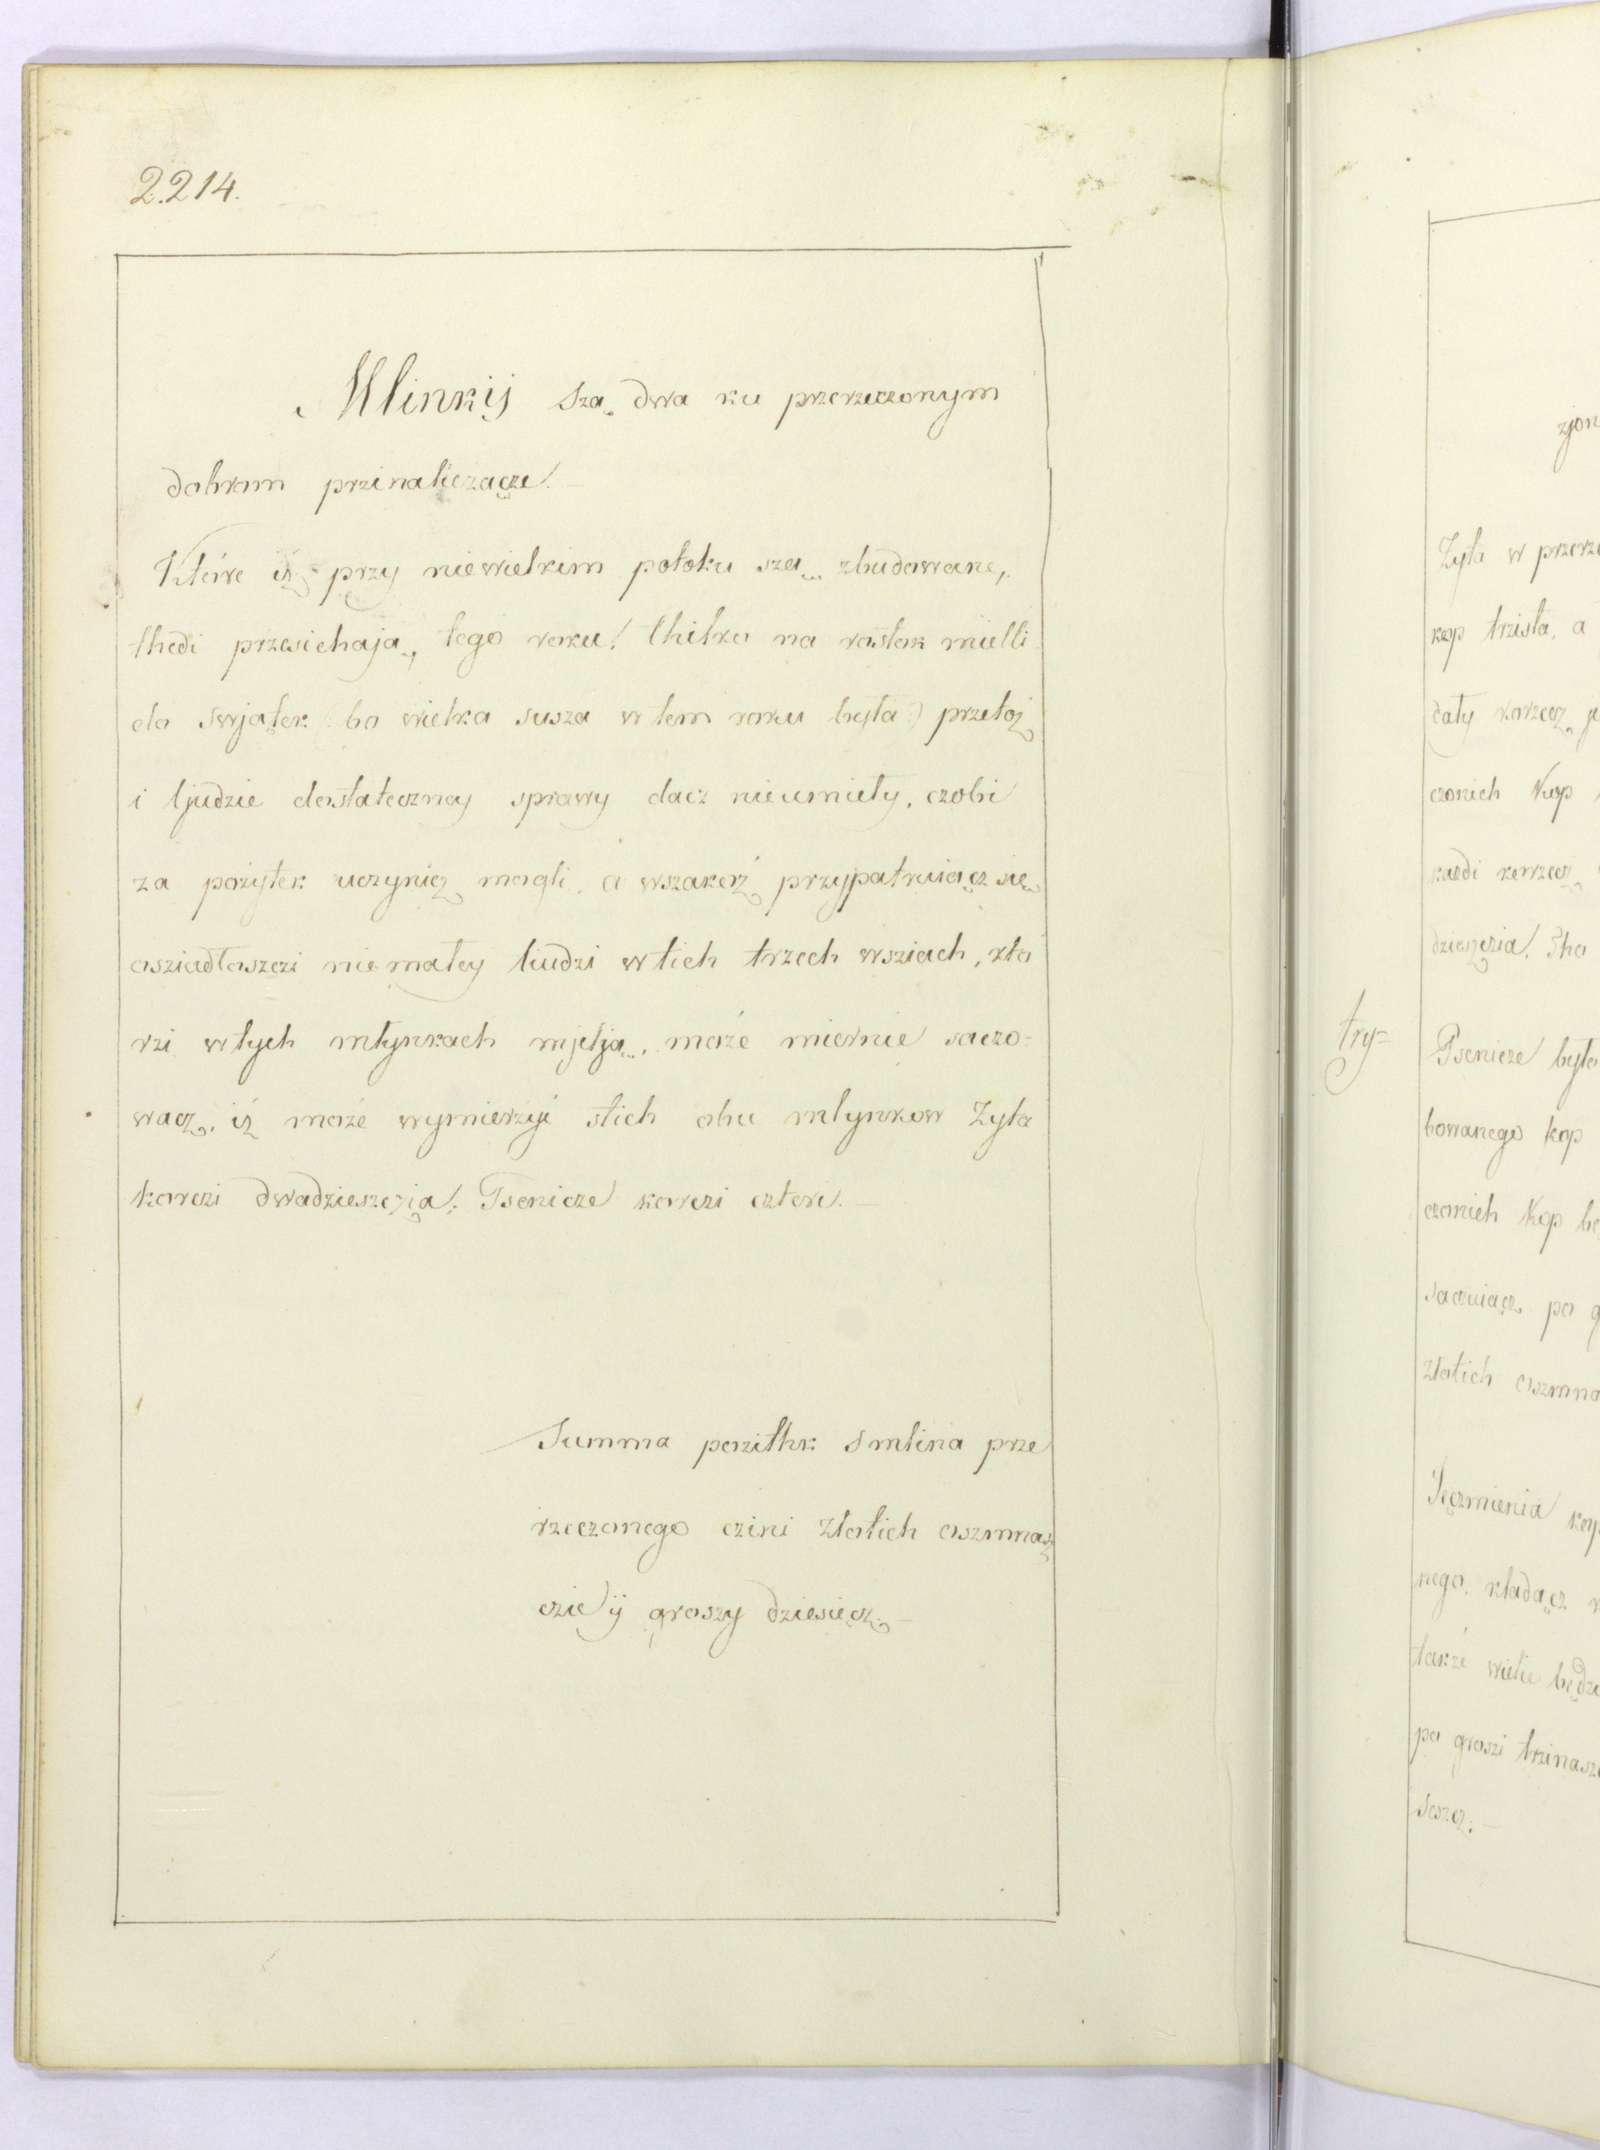 2.214.
Mlinkij szą dwa ku przerzeczonym
dobrom przinaliezącze.
Które iż przy niewielkim potoku szą zbudowane,
thedi przesichają, tego roku! thilko na rostok mielli
do swjątek (bo wielka susza w tem roku była) przetoż
i ljudzie dostateczney sprawy dacz nieumieły, czobi
za pożytek uczynicz mogli, a wszakerż przypatruiącz się
osziadłoszczi niemałey liudzi w tich trzech wsziach, kto
rzi w tych młynkach mjelją, może miernie saczo-
wacz, iż może wymierzyć stich obu młynkow Żyta
korczi dwadzieszczia, Psenicze korczi cztori.
Summa pozithk smlina prze
rzeczonego czini złotich oszmnasz
czie ij groszy dziesięcz.
zjon
Żyta w przerze
kop trzista, a
dały korzecz j
czonich Kop
każdi korzecz
dzieszczia. Sho
try=
Psenicze było
bowanego kop
czonich Kop bę
sacuiącz po g
złotich oszmna
Jęczmienia kop
nego, kładącz
także wiele będzi
po groszi trzinasz
seszcz.